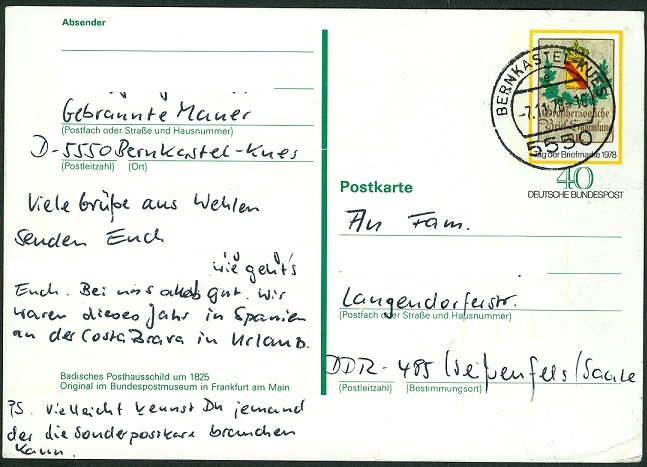 Absender
Gebrannte Mauer
(Postfach oder Straße und Hausnummer)
D-5550 Bernkastel-Kues
(Postleitzahl) (Ort)
Viele Grüße aus Wehlen
senden Euch
wie geht's
Euch. Bei uns alles gut. Wir
waren dieses Jahr in Spanien
an der Costa Brava in Urlaub.
Badisches Posthausschild um 1825
Original im Bundespostmuseum in Frankfurt am Main
PS. Vielleicht kennst Du jemand
der die Sonderpostkare brauchen
kann.
BERNKASTEL-KUES
-7.11.78-16
5550
Großherzogliche
Brief Sammlung
Tag der Briefmarke 1978
40
DEUTSCHE BUNDESPOST
Postkarte
An Fam.
Langendorferstr.
(Postfach oder Straße und Hausnummer)
DDR-485 Weißenfels/Saale
(Postleitzahl) (Bestimmungsort)